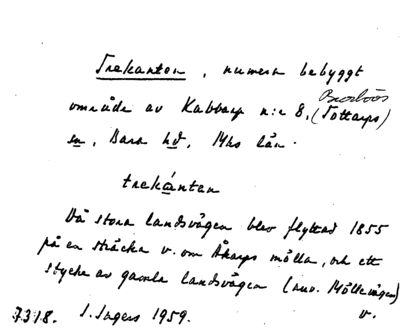 Trekanten, numera bebyggt
Burlövs
område av Kabbarp n:r 8, (Tottarps)
sn, Bara hd, Mhs län.
trekánten
Då stora landsvägen blev flyttad 1855
på en sträcka v. om Åkarps mölla, och ett
stycke av gamla landsvägen (nuv. Möllevägen)
7318. S. Ingers 1959. v.